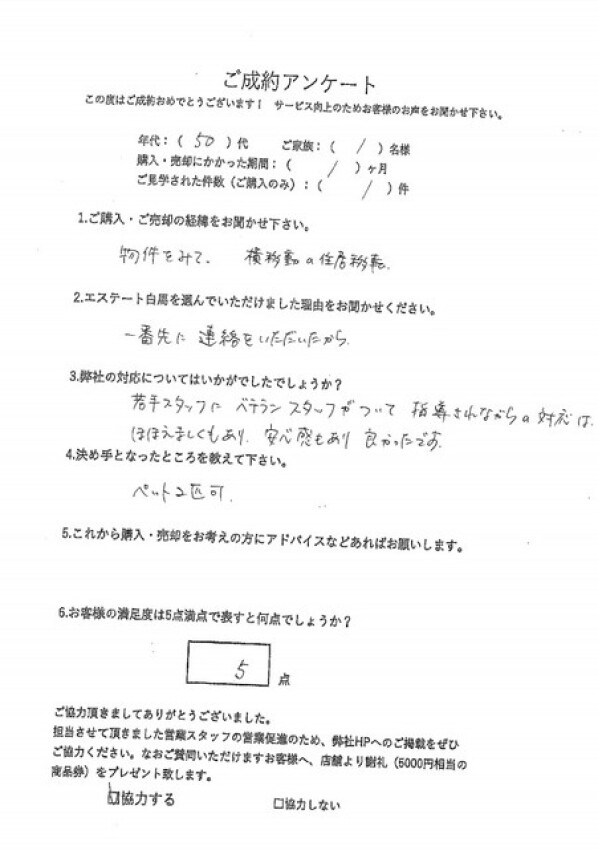 ご成約アンケート
この度はご成約おめでとうございます！ サービス向上のためお客様のお声をお聞かせ下さい。
年代：（ 50 ）代 ご家族：（ / ）名様
購入・売却にかかった期間：（ / ）ヶ月
ご見学された件数（ご購入のみ）：（ / ）件
1.ご購入・ご売却の経緯をお聞かせ下さい。
物件をみて、 横移動の住居移転。
2.エステート白馬を選んでいただけました理由をお聞かせください。
一番先に 連絡をいただいたから。
3.弊社の対応についてはいかがでしたでしょうか？
若手スタッフに ベテランスタッフがついて 指導されながらの対応は、
ほほえましくもあり、安心感もあり 良かったです。
4.決め手となったところを教えて下さい。
ペット2匹可。
5.これから購入・売却をお考えの方にアドバイスなどあればお願いします。
6.お客様の満足度は5点満点で表すと何点でしょうか？
5 点
ご協力頂きましてありがとうございました。
担当させて頂きました営業スタッフの営業促進のため、弊社HPへのご掲載をぜひ
ご協力ください。なおご賛同いただけますお客様へ、店舗より謝礼（5000円相当の
商品券）をプレゼント致します。
☑協力する □協力しない